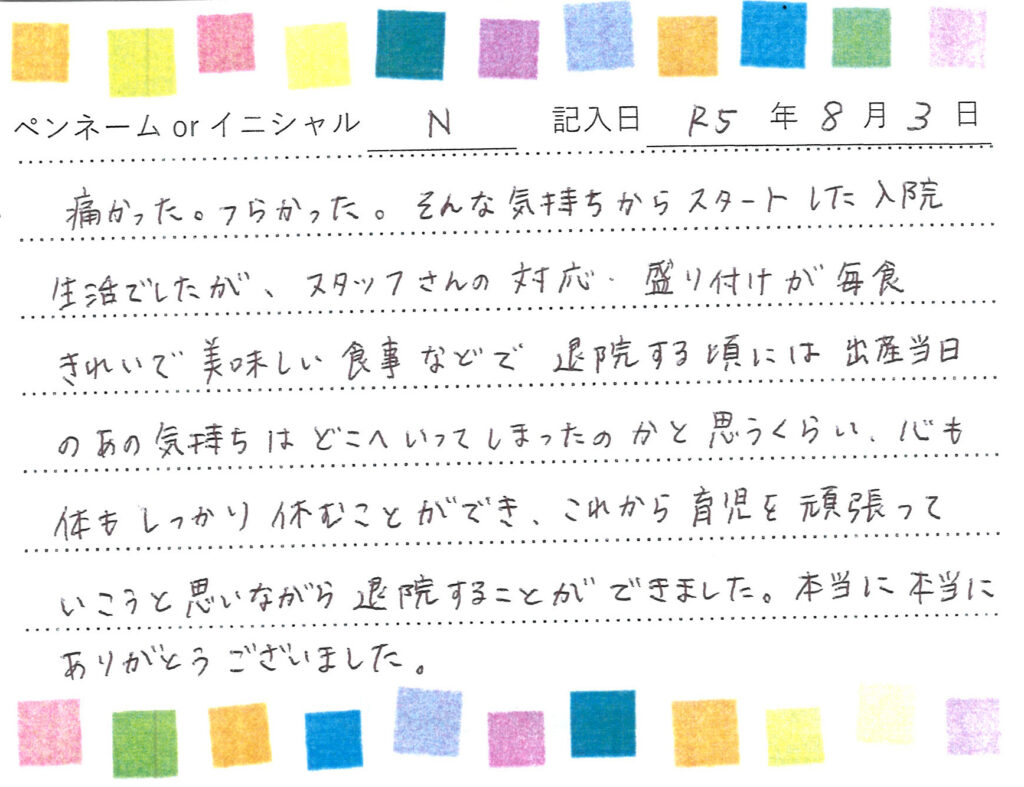 ペンネーム or イニシャル N 記入日 R5 年 8 月 3 日
痛かった。つらかった。そんな気持ちからスタートした入院
生活でしたが、スタッフさんの対応・盛り付けが毎食
きれいで美味しい食事などで退院する頃には出産当日
のあの気持ちはどこへいってしまったのかと思うくらい、心も
体もしっかり休むことができ、これから育児を頑張って
いこうと思いながら退院することができました。本当に本当に
ありがとうございました。